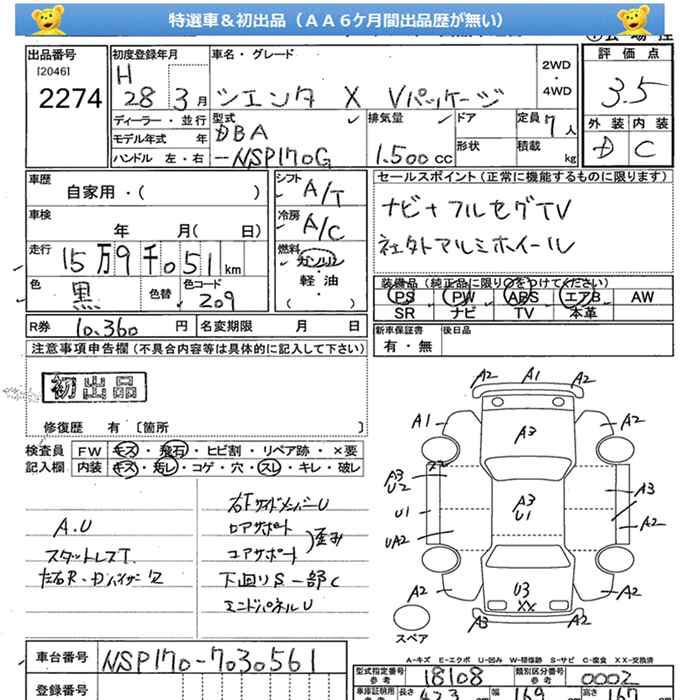 特選車&初出品(AA6ケ月間出品歴が無い)
出品番号 初度登録年月 車名・グレード 評価点
[2046]
2274
H 28 3月
シエンタ X Vパッケージ
2WD・4WD
3.5
ディーラー・並行
型式
DBA-NSP170G
排気量
1.500cc
ドア
定員 7人
外装 内装
D C
モデル年式 年
形状 積載 kg
ハンドル 左・右
車歴
自家用・( )
シフト A/T
セールスポイント(正常に機能するものに限ります)
車検 年 月( 日)
冷房 A/C
ナビ+フルセグTV
走行 15万9千051km
燃料 ガソリン
社外アルミホイール
軽・油
( )
色 黒 色替 色コード 209
装備品(純正品に限り○をつけてください)
PS PW ABS エアB AW
SR ナビ TV 本革
R券 10,360円 名変期限 月 日
新車保証書 後日品
有・無
注意事項申告欄(不具合内容等は具体的に記入して下さい)
初出品
修復歴 有〔箇所 〕
検査員記入欄
FW キズ・飛石・ヒビ割・リペア跡・×要
内装 キズ・汚レ・コゲ・穴・スレ・キレ・破レ
A.U
スタットレスT.
左右R・Dバイザーワレ
右Fサイドメンバー U
ロアサポート
コアサポート
歪み
下回りS 一部C
エンドパネルU
A2 A1 A2
A1 A3 A2
A3 U2
A3 U1
A3
U1
A2
UA2
A2 U3 XX A2
A3 A2
スペア
A-キズ E-エクボ U-凹み W-補修跡 S-サビ C-腐食 XX-交換済
車台番号 NSP170-7030561
型式指定番号 参考 18108
類別区分番号 参考 0002
登録番号
車庫証明用 参考 長さ 423 幅 169 高さ 167